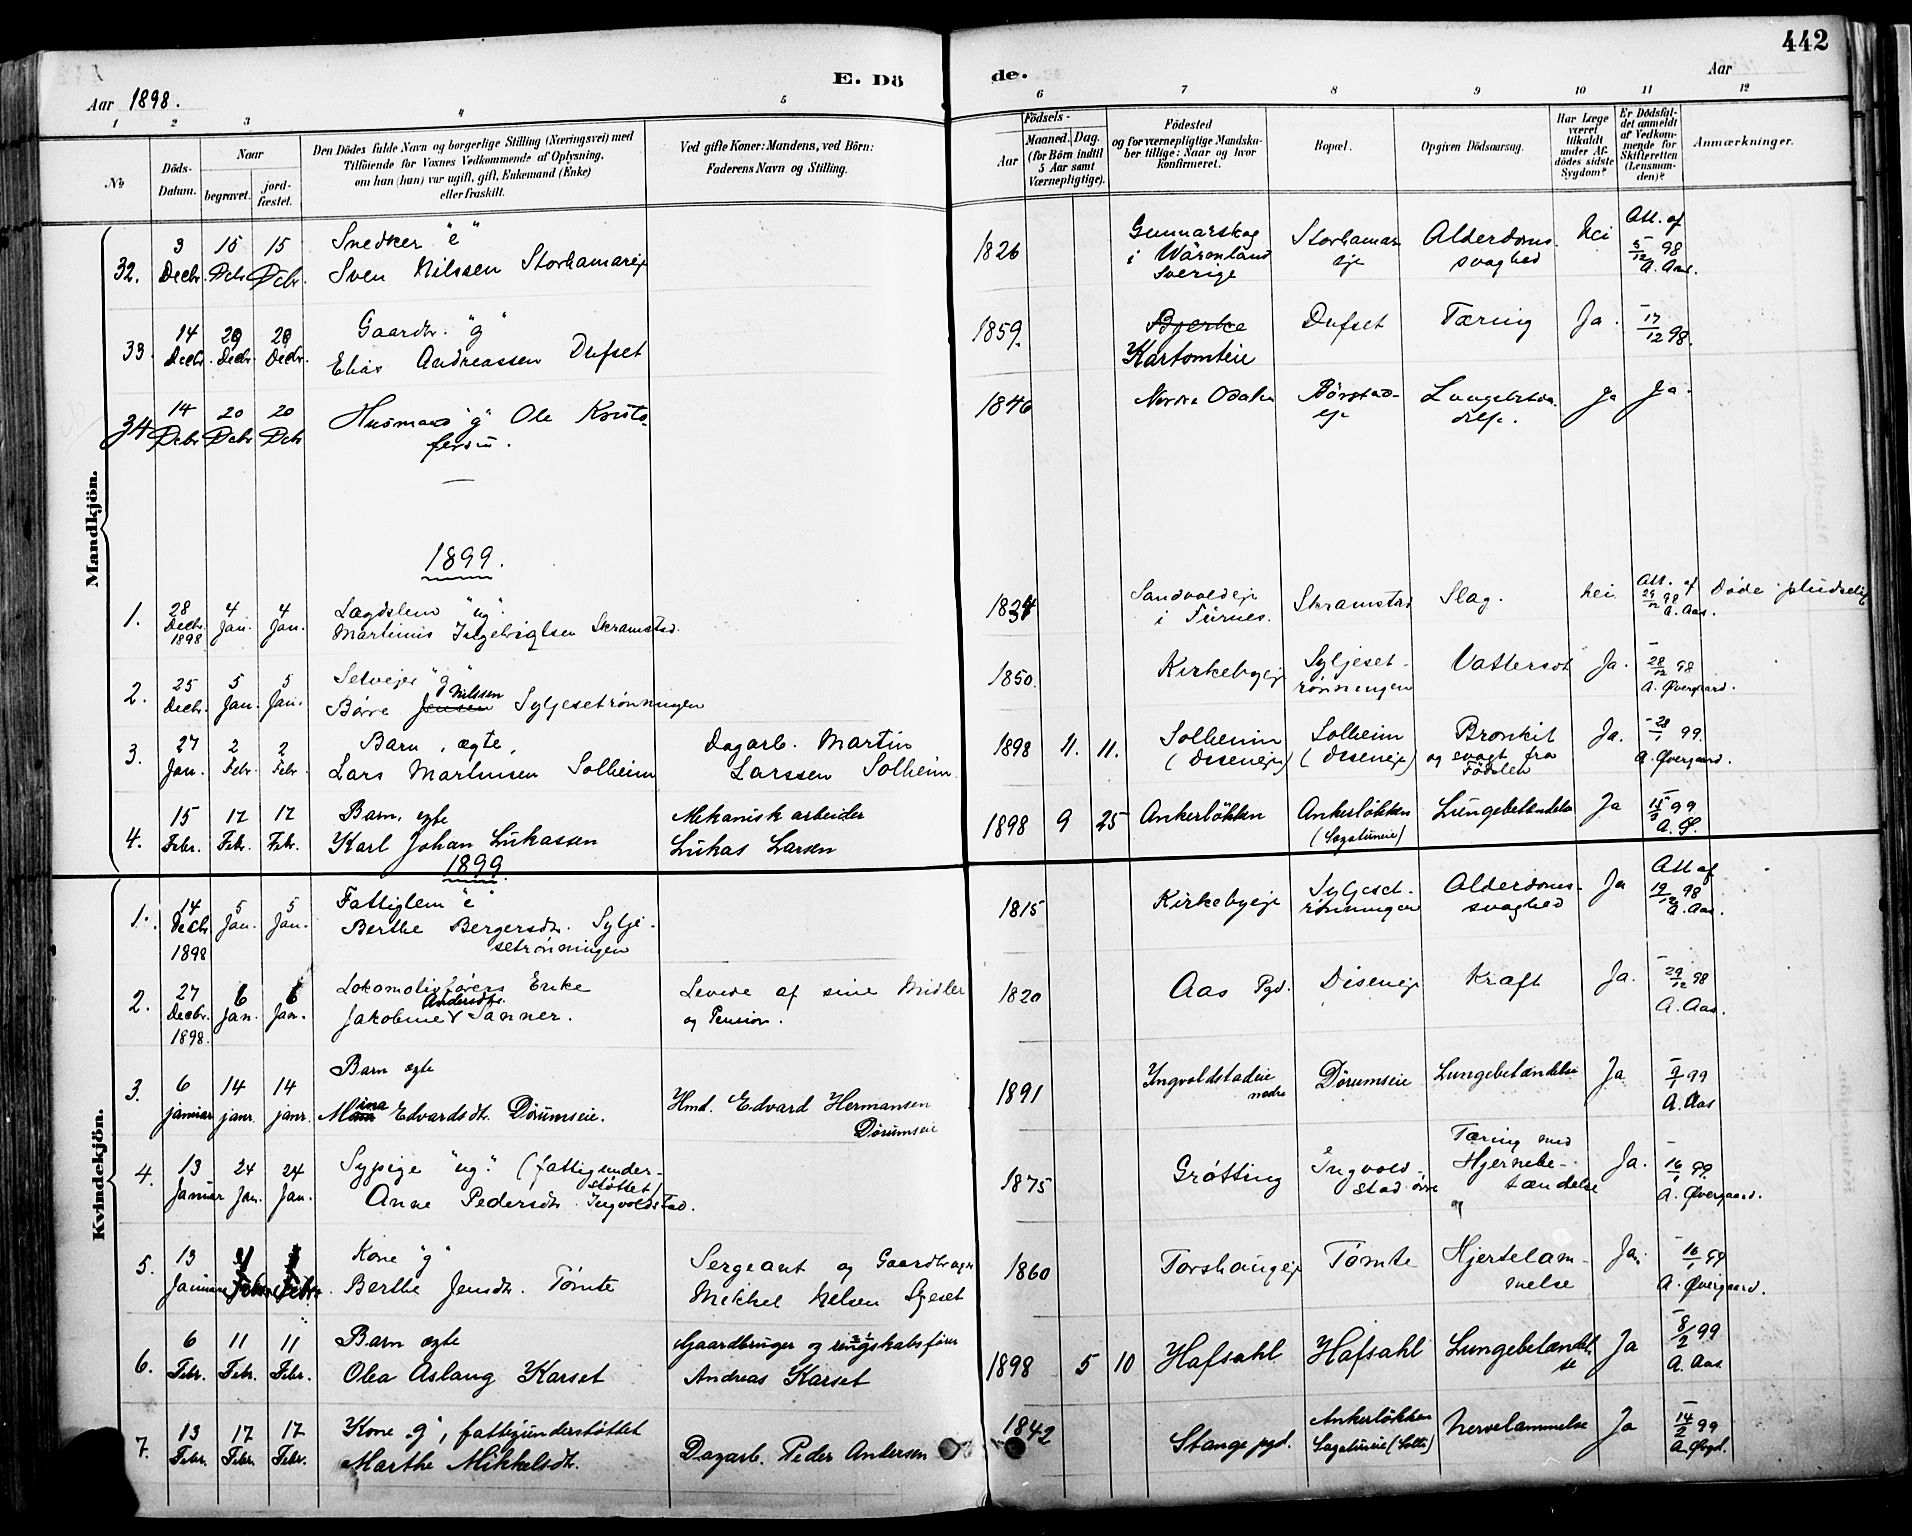 442
E. Döde.
Aar 1898.
Aar
1 2 3 4 5 6 7 8 9 10 11 12
No
Döds-Datum.
Naar
begravet.
jord-fæstet.
Den Dödes fulde Navn og borgerlige Stilling (Næringsvei) med
Tilföiende for Voxnes Vedkommende af Oplysning,
om han (hun) var ugift, gift, Enkemand (Enke)
eller fraskilt.
Ved gifte Koner: Mandens, ved Börn:
Faderens Navn og Stilling.
Födsels-
Aar
Maaned. Dag.
(for Börn indtil
5 Aar samt
Værnepligtige).
Födested
og for værnepligtige Mandska-
ber tillige: Naar og hvor
konfirmeret.
Bopæl.
Opgiven Dödsaarsag.
Har Læge
været
tilkaldt
under Af-
dödes sidste
Sygdom?
Er Dödsfal-
det anmeldt
af Vedkom-
mende for
Skifteretten
(Lensman-
den)?
Anmærkninger.
Mandkjön.
32. 3 Decbr. 15 Dcbr. 15 Dcbr. Snedker "e"
Sven Nilssen Storhamareje
1826 Gunnarskog i Wärenland Sverige Storhamar eje Alderdoms svaghed Nei Att. af 5/12 98 A. Aas.
33. 14 Decbr. 20 Decbr. 20 Decbr. Gaardbr. "g"
Elias Andreassen Dufset
1859. Bjerke Kartomteie Dufset Tæring Ja. 17/12 98.
34 14 Dcbr 20 Dcbr 20 Dcbr Husmand "g" Ole Kristofersen.
1846 Nordre Odalen Børstad-eje Lungebetændelse. Ja Ja.
1899.
1. 28 Decbr. 1898 4 Jan. 4 Jan. Lægdslem "ug"
Martinus Ingebrigtsen Skramstad.
1834 Sandvoldeje i Furnes. Skramstad Slag. Nei Att. af 29/12 98 A. Aas. Døde pludselig
2. 25 Decbr. 5 Jan. 5 Jan. Selvejer "g"
Børre Jensen Nilssen Syljesetrønningen
1850. Kirkebyeje Syljeset-rønningen Vattersot Ja. 28/12 98 A. Øvergaard.
3. 27 Jan. 2 Febr. 2 Febr. Barn, ægte,
Lars Martinsen Solheim
Dagarb. Martin Larssen Solheim
1898 11. 11. Solheim (Diseneje) Solheim (Diseneje) Bronkit og svagt fra Fødslen Ja. 28/1 99. A. Øvergaard.
4. 15 Febr. 17 Febr. 17 Febr. Barn, egte
Karl Johan Lukassen
Mekanisk arbeider
Lukas Larsen
1898 9 25 Ankerløkken Ankerløkken (Sagatuneie) Lungebetændelse Ja 15/2 99 A. Ø.
Kvindekjön.
1899.
1. 14 Decbr 1898 5 Jan. 5 Jan. Fattiglem "e"
Berthe Bergersdtr. Syljesetrønningen
1815 Kirkebyeje Syljeset-rønningen Alderdoms-svaghed Ja Att af 19/12 98 A. Aas.
2. 27 Decbr. 1898. 6 Jan. 6 Jan. Lokomotivførers Enke
Jakobine Andersdtr. Sanner.
Levede af sine Midler
og Pension.
1820 Aas Pgd. Diseneje Kræft Ja. 29/12 98 A. Aas.
3. 6 januar 14 janr. 14 janr. Barn egte
Mina Edvardsdtr. Dørumseie.
Hmd. Edvard Hermansen
Dørumseie
1891 Yngvoldstadeie nedre Dørumseie Lungebetændelse Ja 9/1 99 A. Aas
4. 13 Januar 24 Jan. 24 Jan. Sypige "ug." (fattigunder-støttet)
Anne Pedersdtr. Ingvoldstad.
1875 Grøtting Ingvold-stad øvre Tæring med Hjernebe-tændelse Ja. 16/1 99. A. Øvergaard.
5. 13 Januar Febr Febr. Kone "g"
Berthe Jensdtr. Tømte
Sergeant og Gaardbruger
Mikkel Nelsen
1860 Torshaugeje Tømte Hjertelam-melse Ja. 16/1 99 A. Øvergaard.
6. 6 Febr. 11 Febr. 11 Febr. Barn egte
Olea Aslaug Karset
Gaardbruger og regnskabsfører
Andreas Karset
1898 5 10 Hafsahl Hafsahl Lungebetændelse Ja 8/2 99 A. Aas
7. 13 Febr. 17 Febr. 17 Febr. Kone "g", fattigunderstøttet
Marthe Mikkelsdtr.
Dagarb. Peder Andersen
1842 Stange pgd. Ankerløkken Sagatuneie (Solli) Nervelammelse Ja 14/2 99 A. Øvgd.